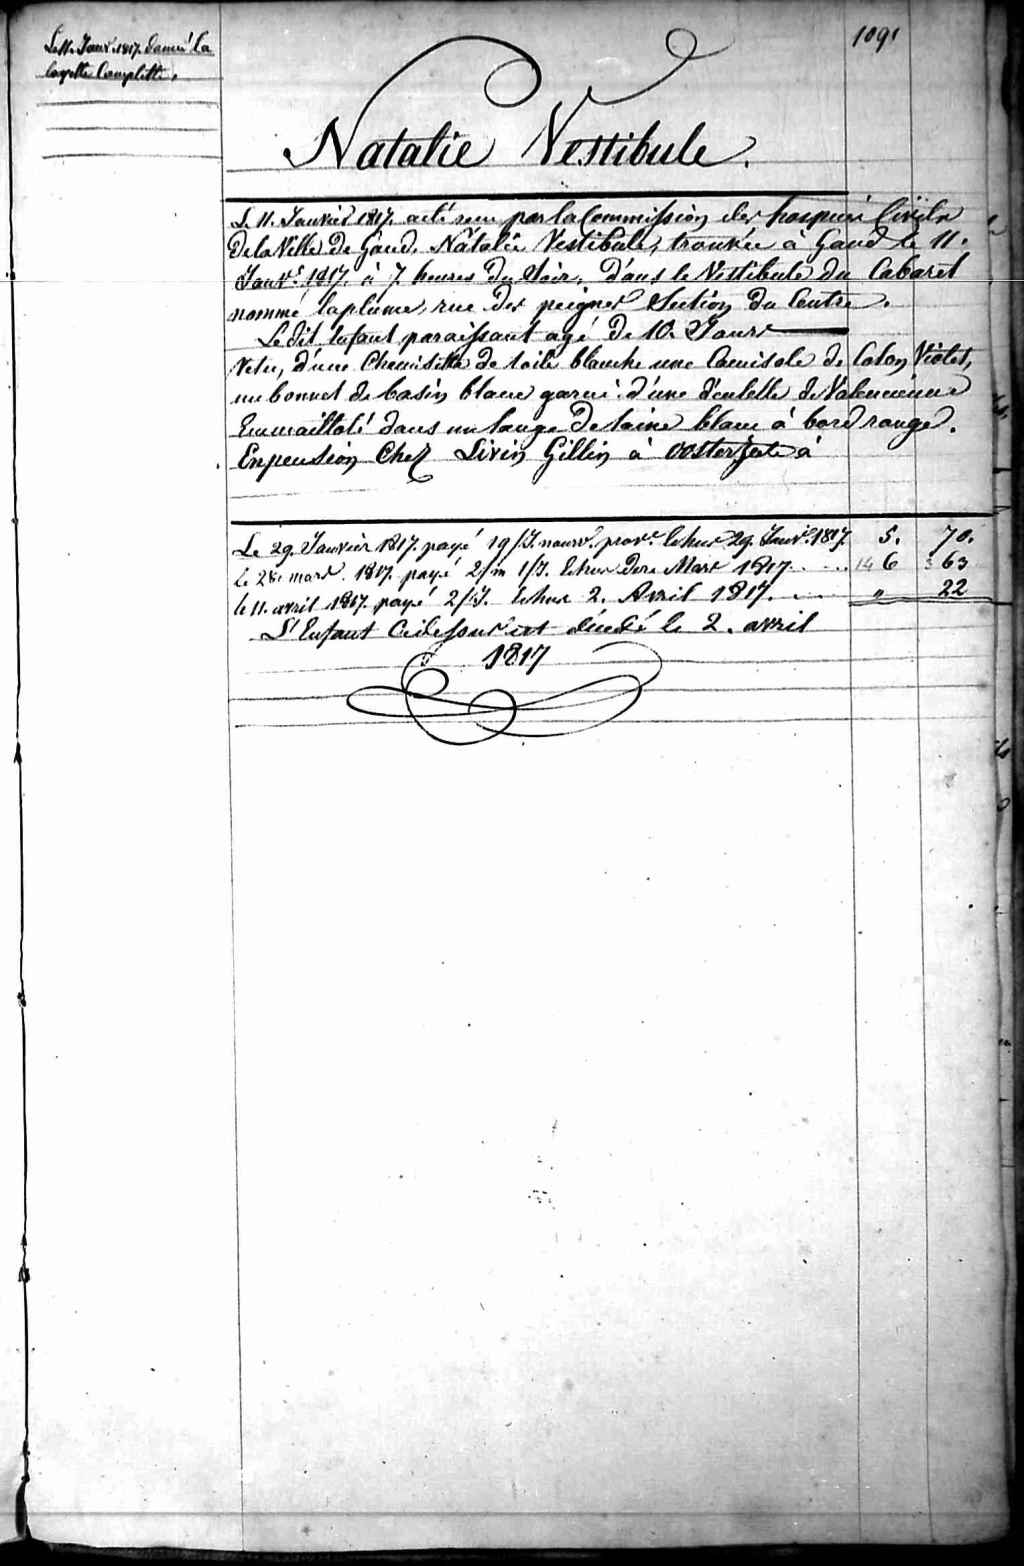 Le 11. Janvr. 1817. donné la
layette Complette.
1091
Natalie Vestibule.
Le 11. Janvier 1817. a été reçu par la Commission des hospices Civils
de la Ville de Gand. Natalie Vestibule, trouvée à Gand le 11.
Janvr. 1817. à 7. heures du Soir, dans le Vestibule du Cabaret
nommé la plume, rue des peignes Section du Centre.
Le dit Enfant paraissant agé de 10. Jours
Vetu, d'une Chemisette de toile blanche une Camisole de Coton Violet,
un bonnet de basin blanc garni d'une dentelle de Valencienne
Emmailloté dans un lange de laine blanc à bord rouge.
En pension Chez Livin Gillin à Oosterzeele à
Le 29. Janvier 1817. payé 19/J. nourr. prov. Echus 29. Janvr. 1817. 5. 70.
le 28e mars. 1817. payé 2/m 1/J. Echus dere Mars 1817. 14 6 3 63
le 11. avril 1817. payé 2/J. Echus 2. Avril 1817. " 22
L'Enfant Cidessus est décédé le 2. avril
1817